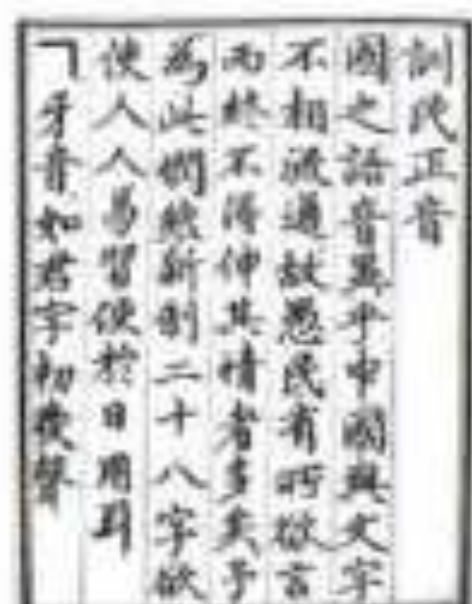 訓民正音
國之語音異乎中國與文字
不相流通故愚民有所欲言
而終不得伸其情者多矣予
為此憫然新制二十八字欲
使人人易習便於日用耳
ㄱ牙音如君字初發聲